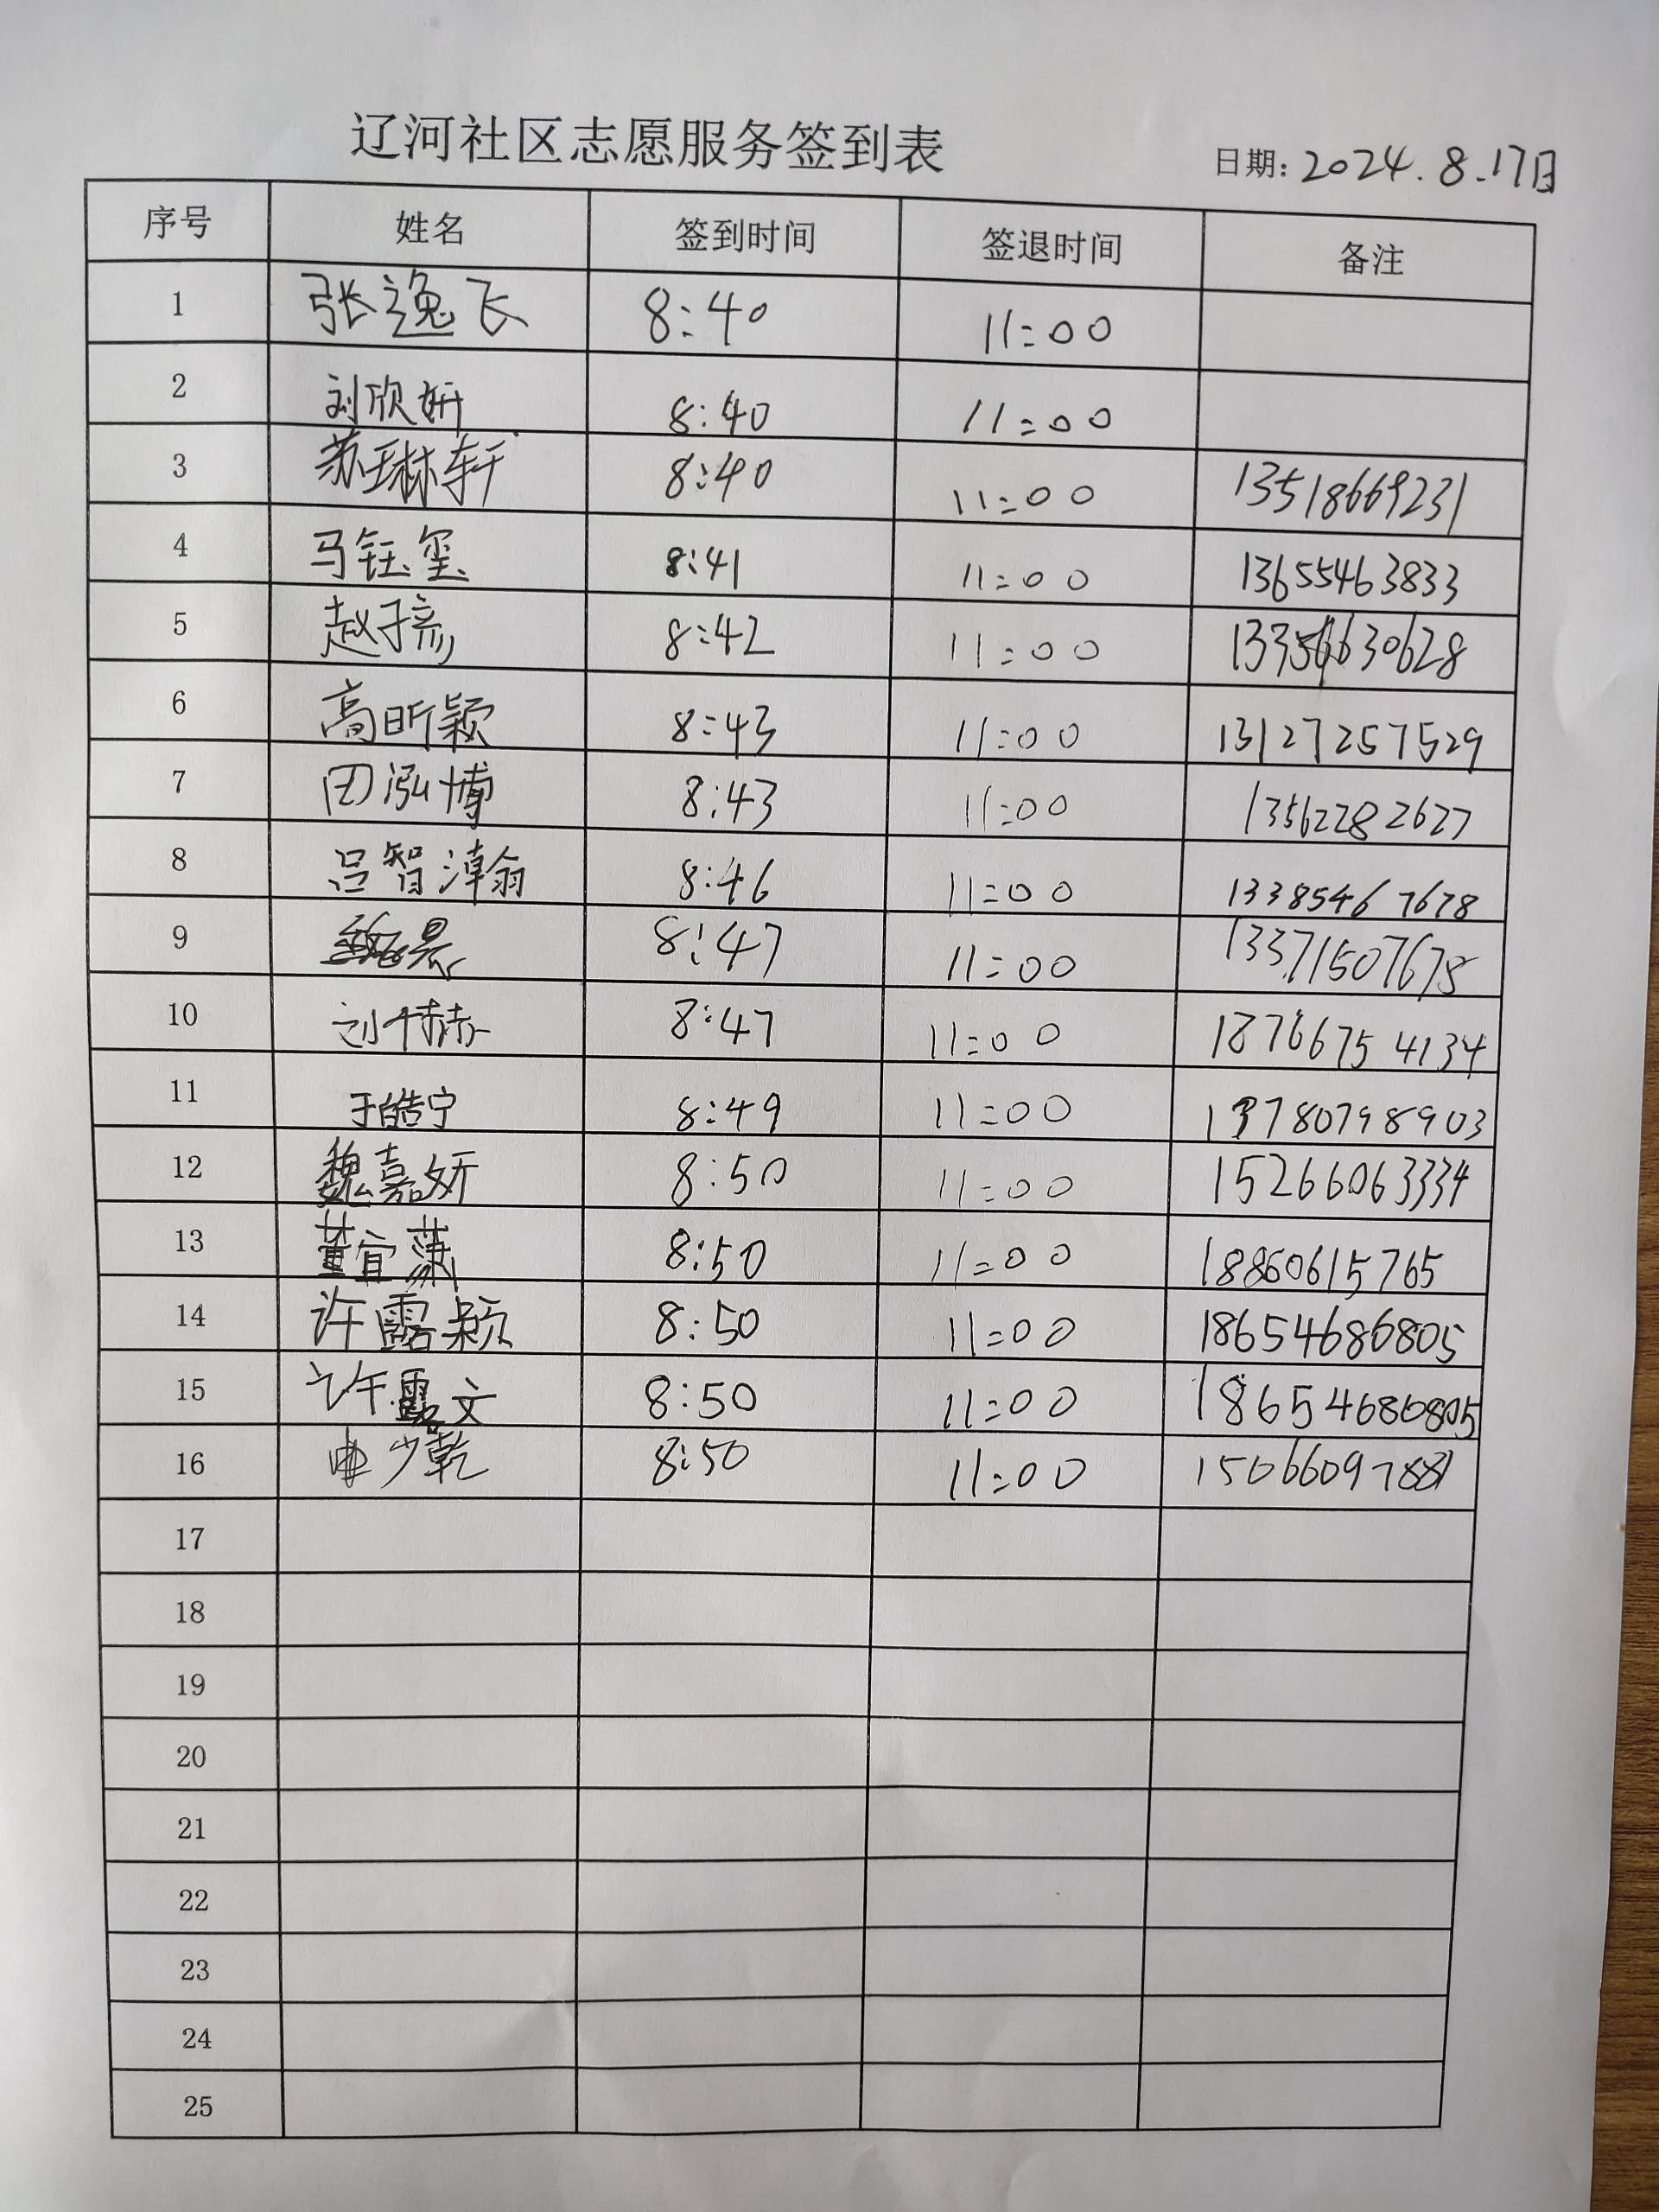 辽河社区志愿服务签到表 日期: 2024.8.17日
序号 姓名 签到时间 签退时间 备注
1 张逸飞 8:40 11:00
2 刘欣妍 8:40 11:00
3 苏琳轩 8:40 11:00 13518669231
4 马钰玺 8:41 11:00 13655463833
5 赵子彦 8:42 11:00 13356630628
6 高昕颖 8:43 11:00 13127257529
7 田泓博 8:43 11:00 13562282627
8 吕智瀚 8:46 11:00 13385467678
9 8:47 11:00 13371507678
10 8:47 11:00 18766754134
11 于皓宁 8:49 11:00 13780798903
12 魏嘉妍 8:50 11:00 15266063334
13 董宜 8:50 11:00 18860615765
14 许露颖 8:50 11:00 18654686805
15 许露文 8:50 11:00 18654686805
16 少乾 8:50 11:00
17
18
19
20
21
22
23
24
25